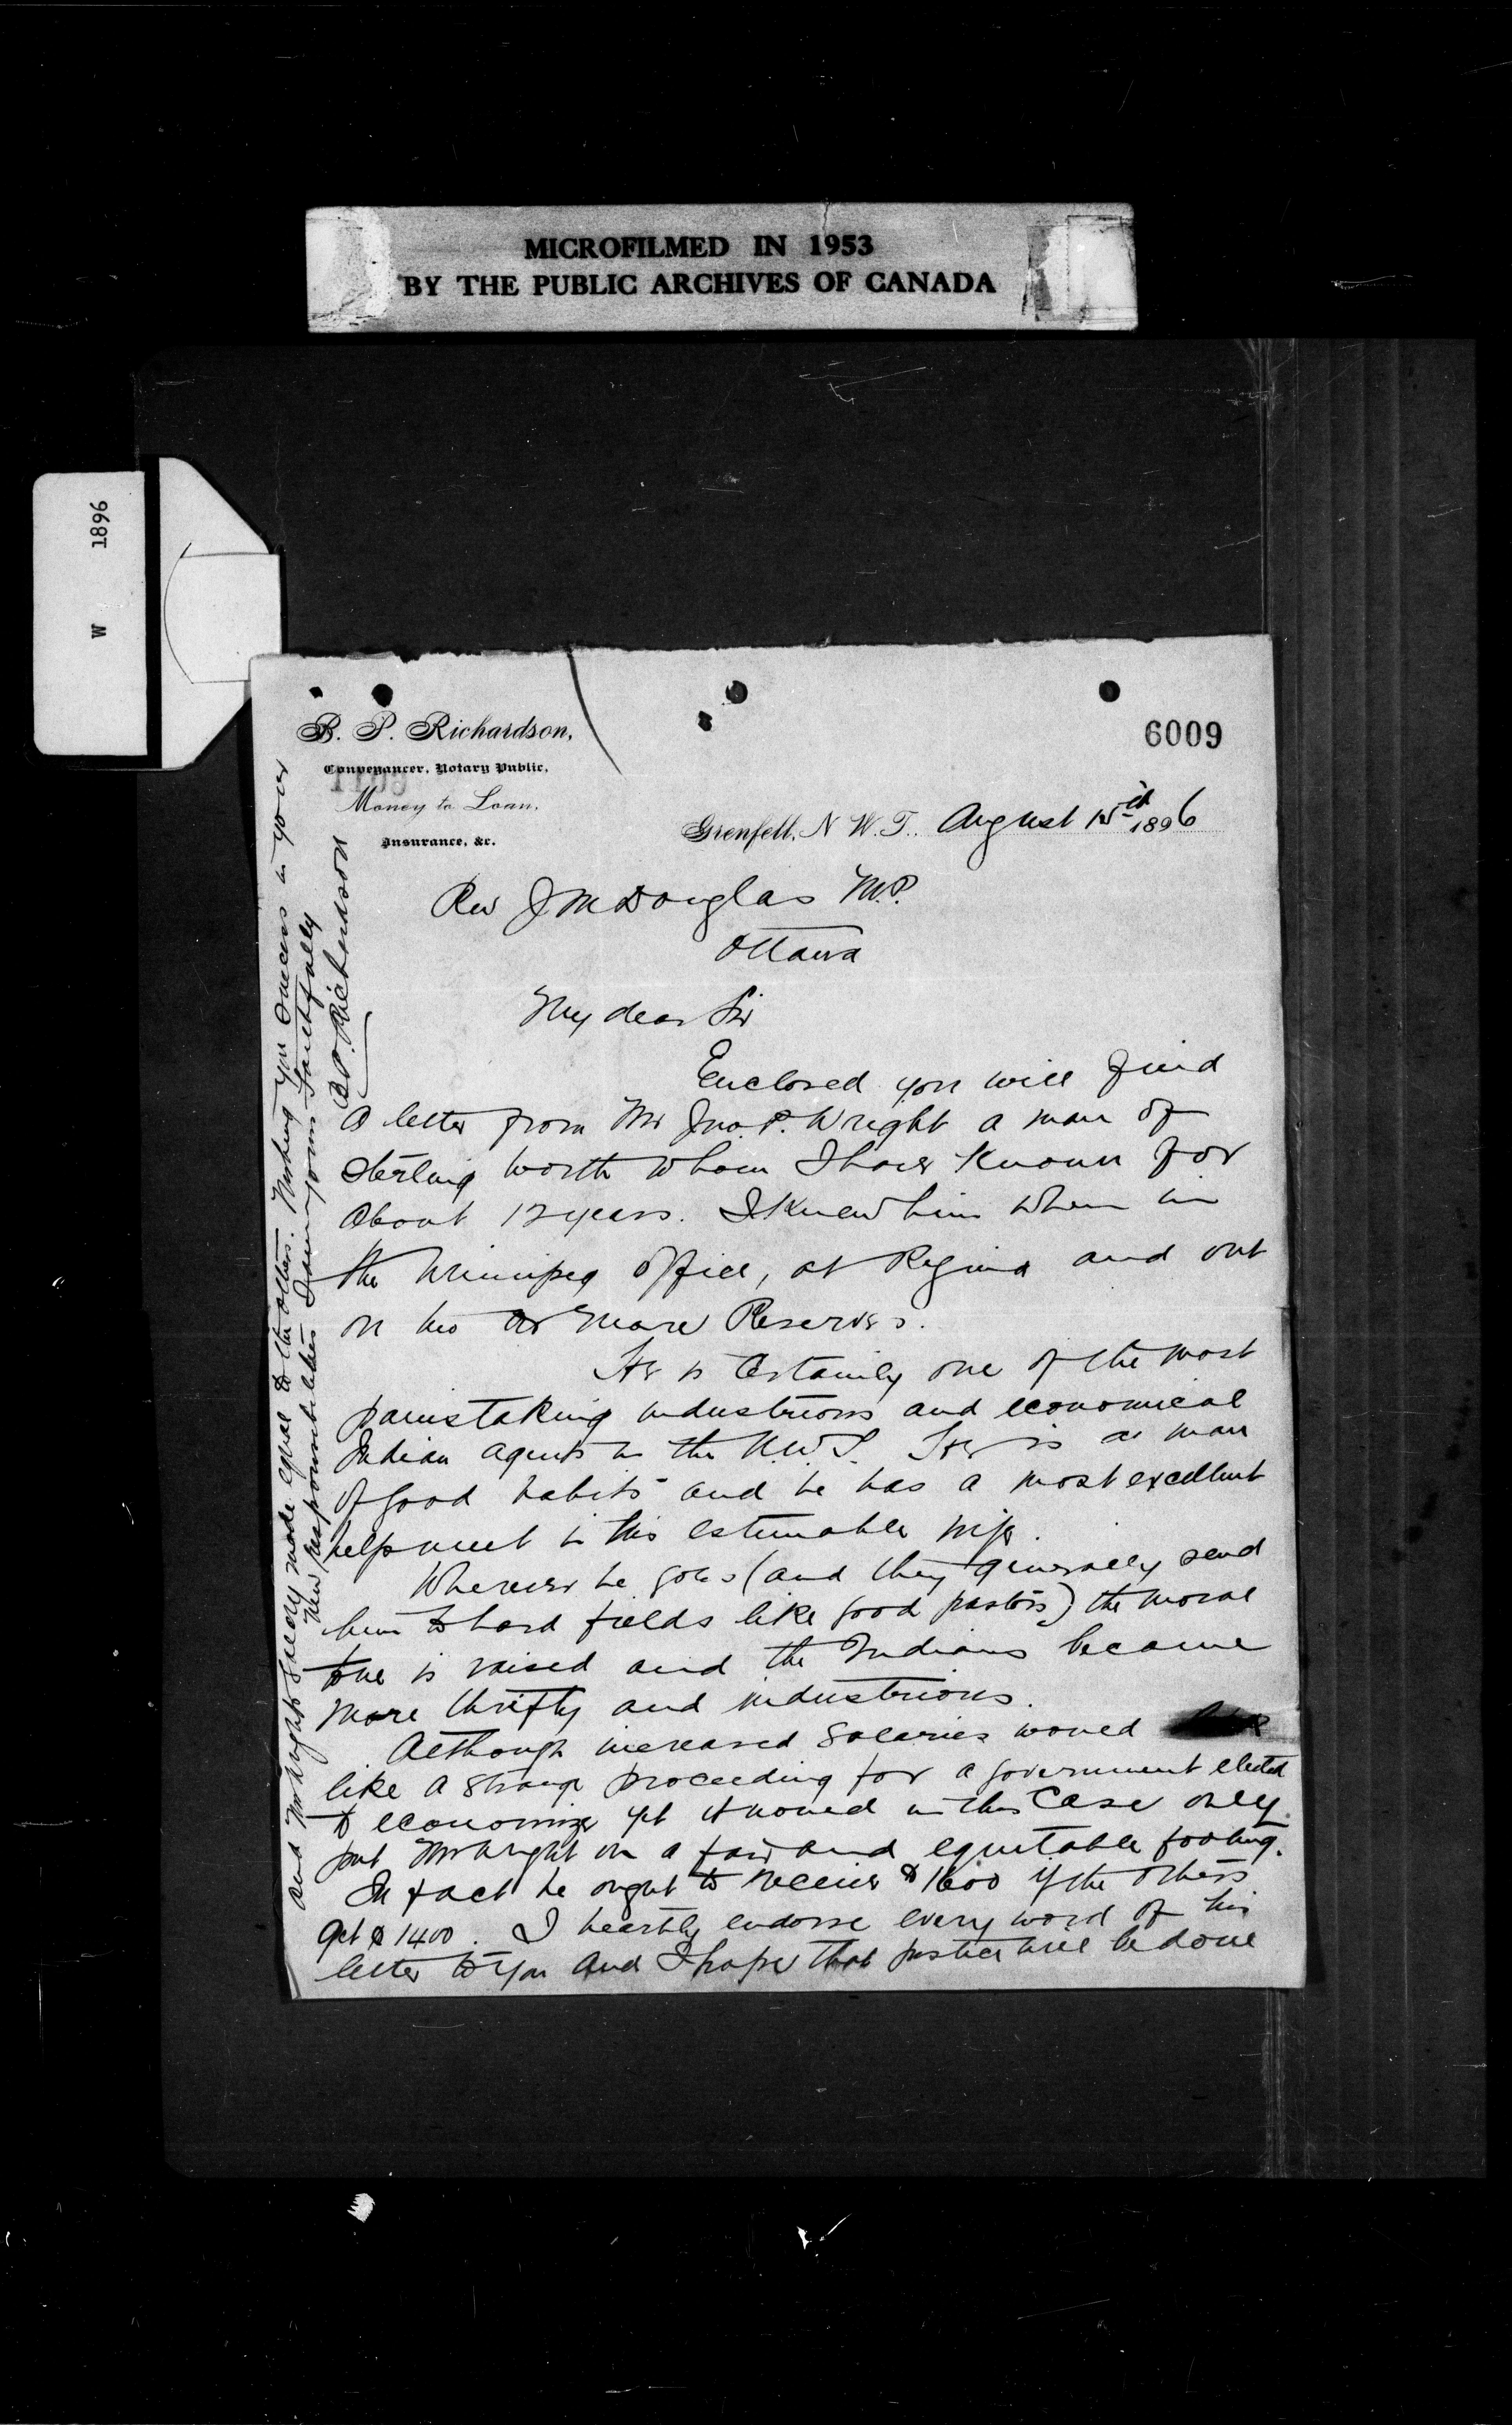 MICROFILMED IN 1953
BY THE PUBLIC ARCHIVES OF CANADA
W 1896
B. P. Richardson,
Conveyancer, Notary Public,
Money to Loan,
Insurance, &c.
1109
6009
Grenfell, N. W. T., August 15th 1896
Rev J M Douglas M.P.
Ottawa
My dear Sir
Enclosed you will find
a letter from Mr Jno. P. Wright a man of
sterling worth whom I have known for
about 12 years. I knew him when in
the Winnipeg Office, at Regina and out
on two or more Reserves.
He is certainly one of the most
painstaking industrious and economical
Indian agents in the N.W.T. He is a man
of good habits and he has a most excellent
helpmeet in his estimable wife.
Wherever he goes (and they generally send
him to hard fields like good pastors) the moral
tone is raised and the Indians become
more thrifty and industrious.
Although increased salaries would
like a strange proceeding for a government elected
to economize yet it would in this case only
put Mr Wright on a fair and equitable footing.
In fact he ought to receive $1600 if the others
get $1400. I heartily endorse every word of his
letter to you and I hope that justice will be done
and Mr Wright's salary made equal to the others. Wishing you success in your
new responsibilities I am yours faithfully
B.P. Richardson